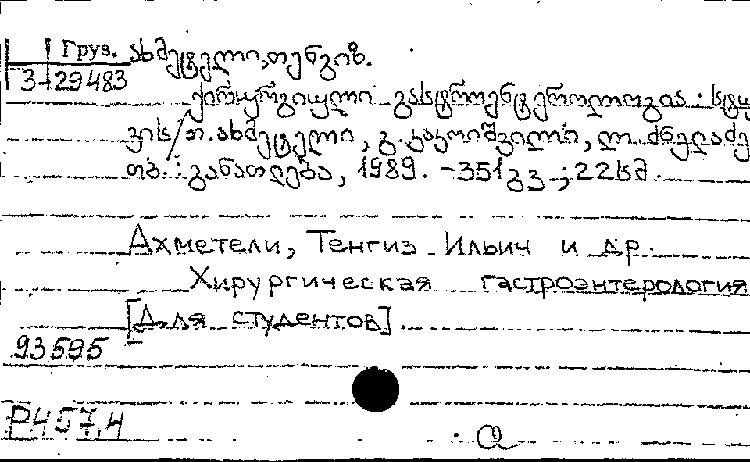 Груз. ახმეტელი, თენგიზ.
3-29483
ქირურგიული გასტროენტეროლოგია : სტუ
ვის / თ. ახმეტელი, გ. კაკოიშვილი, ლ. ძნელაძე
თბ. : განათლება, 1989. - 351 გვ ; 22 სმ.
Ахметели, Тенгиз Ильич и др.
Хирургическая гастроэнтерология
[Для студентов].
93595
Р457.4